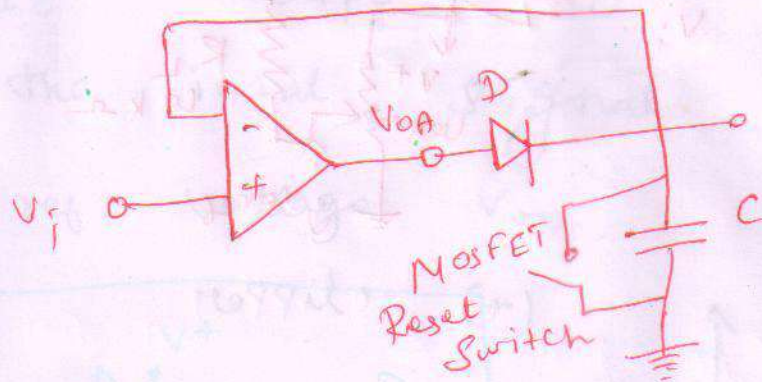 D
VOA
-
+
Vi
C
MOSFET
Reset
Switch